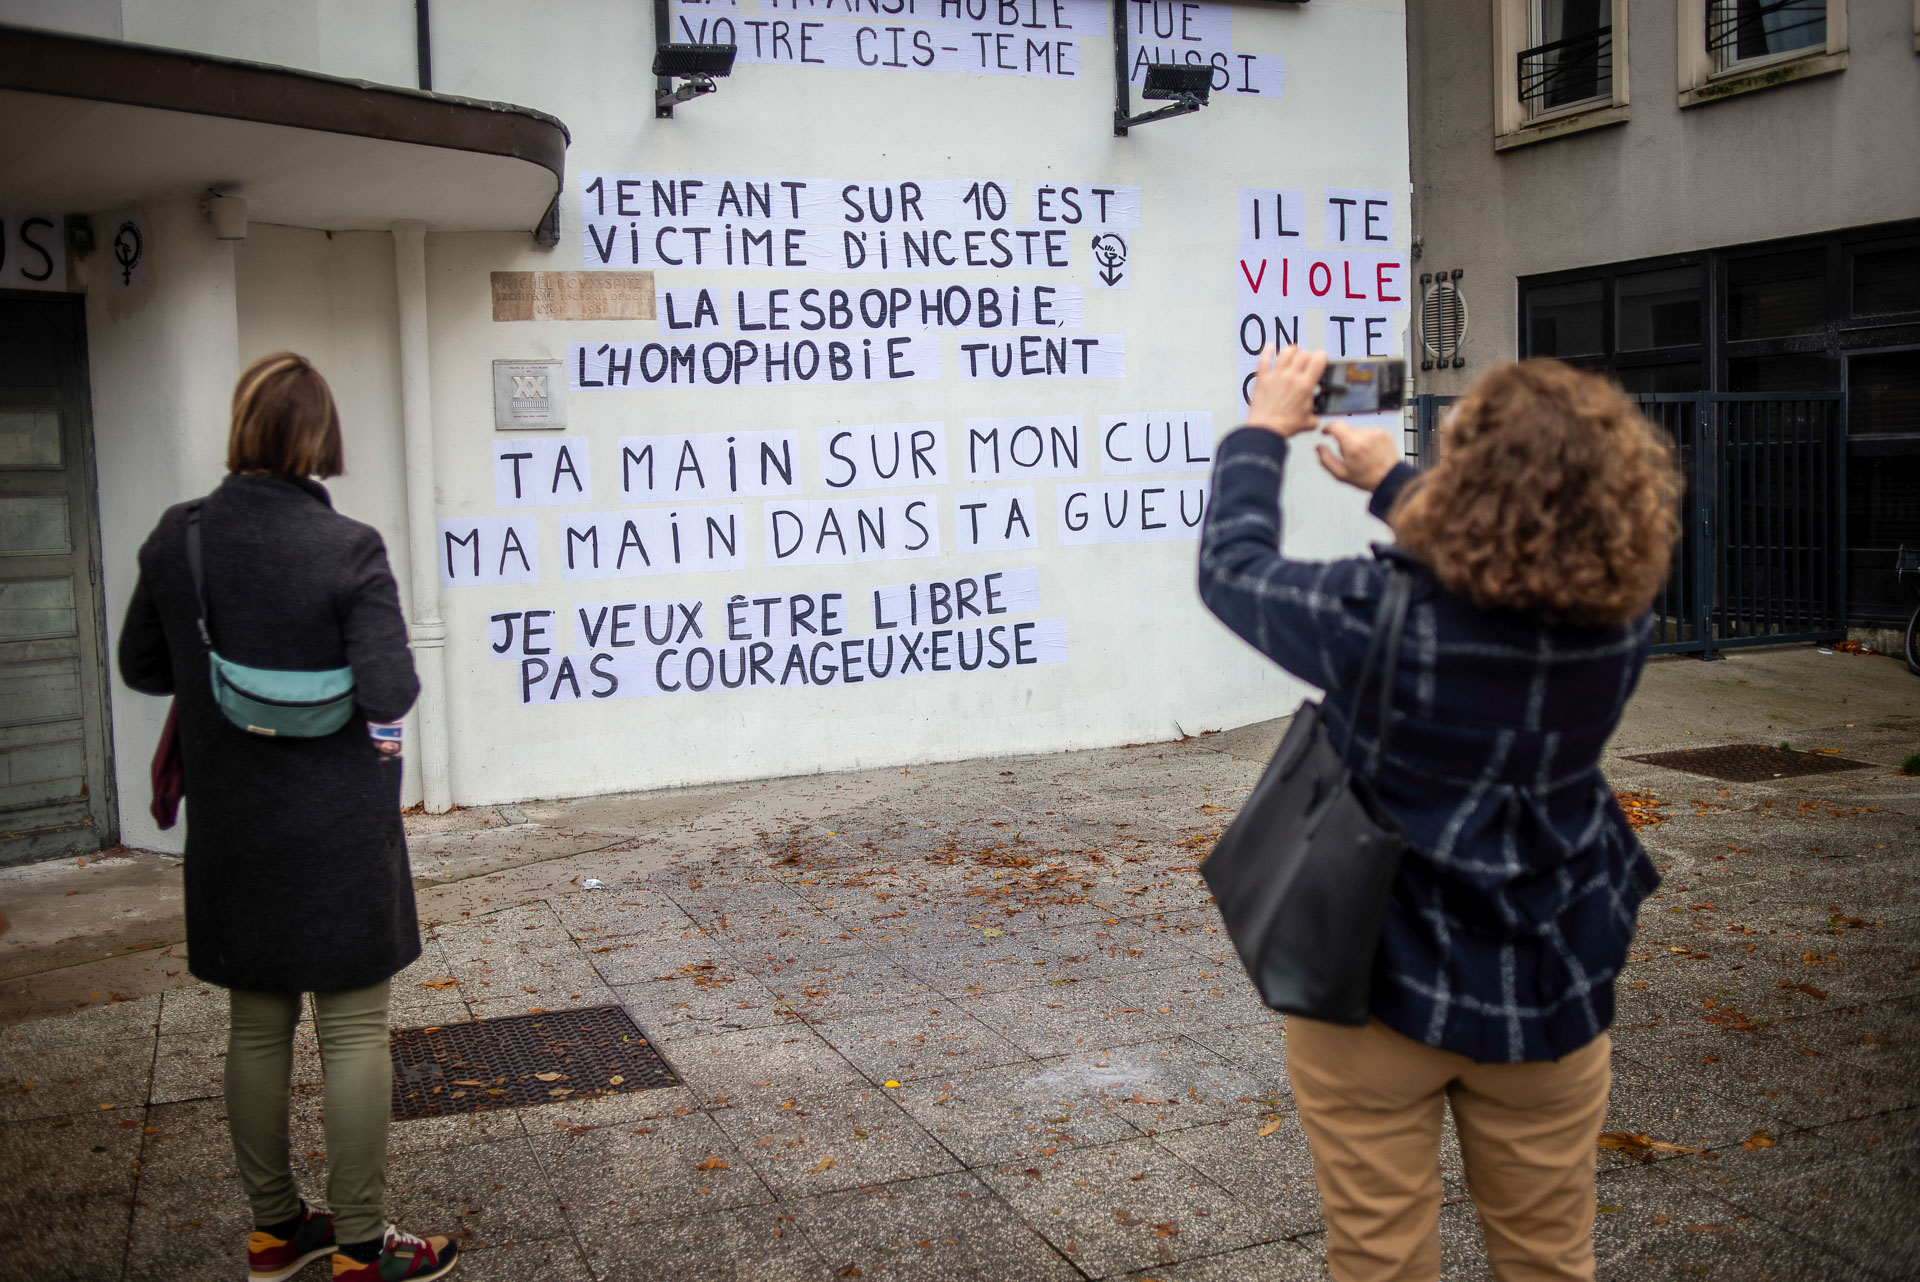 LA TRANSPHOBIE TUE
VOTRE CIS-TEME AUSSI
US
1 ENFANT SUR 10 EST
VICTIME D'INCESTE
LA LESBOPHOBIE,
L'HOMOPHOBIE TUENT
TA MAIN SUR MON CUL
MA MAIN DANS TA GUEU
JE VEUX ÊTRE LIBRE
PAS COURAGEUX·EUSE
IL TE
VIOLE
ON TE
MICHEL ROUX-SPITZ
ARCHITECTE
LYON 1931
XX